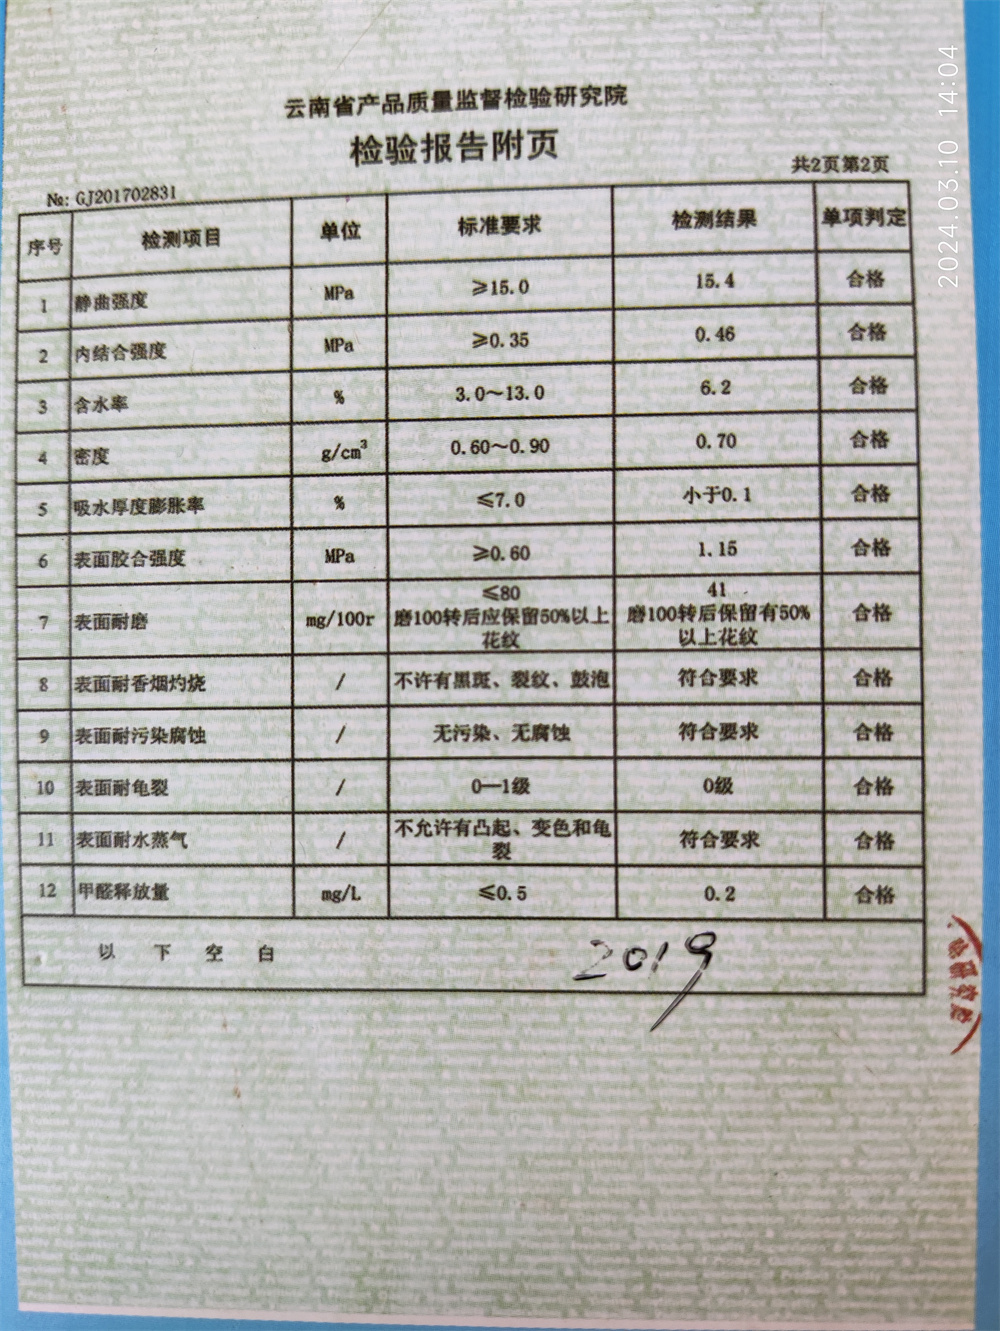 云南省产品质量监督检验研究院
检验报告附页
共2页第2页
№: GJ201702831
序号 检测项目 单位 标准要求 检测结果 单项判定
1 静曲强度 MPa ≥15.0 15.4 合格
2 内结合强度 MPa ≥0.35 0.46 合格
3 含水率 % 3.0～13.0 6.2 合格
4 密度 g/cm³ 0.60～0.90 0.70 合格
5 吸水厚度膨胀率 % ≤7.0 小于0.1 合格
6 表面胶合强度 MPa ≥0.60 1.15 合格
7 表面耐磨 mg/100r ≤80 磨100转后应保留50%以上花纹 41 磨100转后保留有50%以上花纹 合格
8 表面耐香烟灼烧 / 不许有黑斑、裂纹、鼓泡 符合要求 合格
9 表面耐污染腐蚀 / 无污染、无腐蚀 符合要求 合格
10 表面耐龟裂 / 0—1级 0级 合格
11 表面耐水蒸气 / 不允许有凸起、变色和龟裂 符合要求 合格
12 甲醛释放量 mg/L ≤0.5 0.2 合格
以下空白
2019
验研究院
2024.03.10 14:04